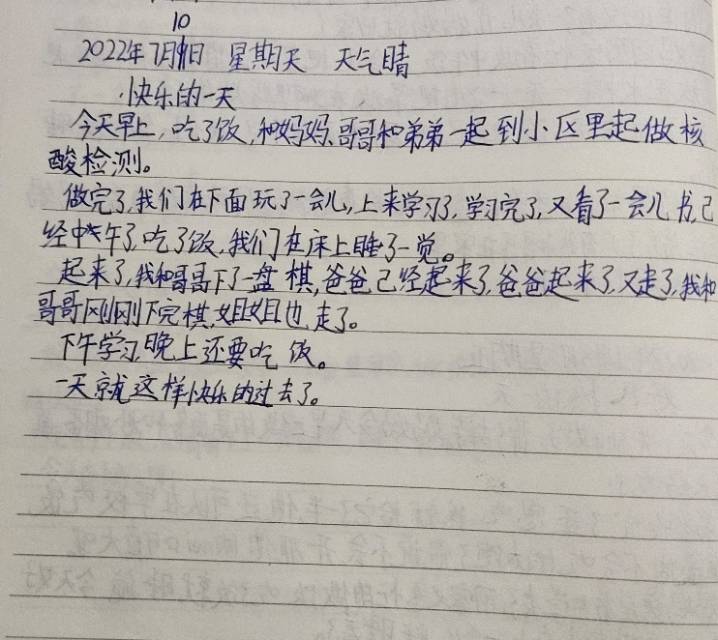 10
2022年7月日 星期天 天气晴
快乐的一天
今天早上,吃了饭,和妈妈、哥哥和弟弟一起到小区里起做核
酸检测。
做完了,我们在下面玩了一会儿,上来学习了,学习完了,又看了一会儿书,已
经中午了,吃了饭,我们在床上睡了一觉。
起来了,我和哥哥下了一盘棋,爸爸已经起来了,爸爸起来了,又走了,我和
哥哥刚刚下完棋,姐姐也走了。
下午学习,晚上还要吃饭。
一天就这样快乐的过去了。